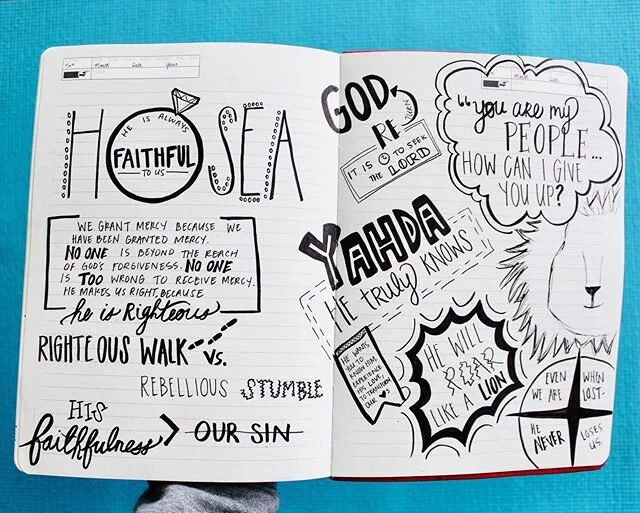 HOSEA
HE IS ALWAYS
FAITHFUL
TO US
WE GRANT MERCY BECAUSE WE
HAVE BEEN GRANTED MERCY.
NO ONE IS BEYOND THE REACH
OF GOD'S FORGIVENESS. NO ONE
IS TOO WRONG TO RECEIVE MERCY.
HE MAKES US RIGHT, BECAUSE
he is Righteous
RIGHTEOUS WALK VS.
REBELLIOUS STUMBLE
HIS
faithfulness > OUR SIN
GOD
RE
TURN
IT IS TO SEEK
THE LORD
"You are my
PEOPLE...
HOW CAN I GIVE
YOU UP?
YAHDA
HE truly KNOWS
HE WANTS
YOU TO
KNOW HIM,
EXPERIENCE
HIS LOVE,
TO TRANSFORM
OUR
HE WILL
ROAR
LIKE A LION
EVEN WHEN
WE ARE LOST-
HE LOSES
NEVER US.